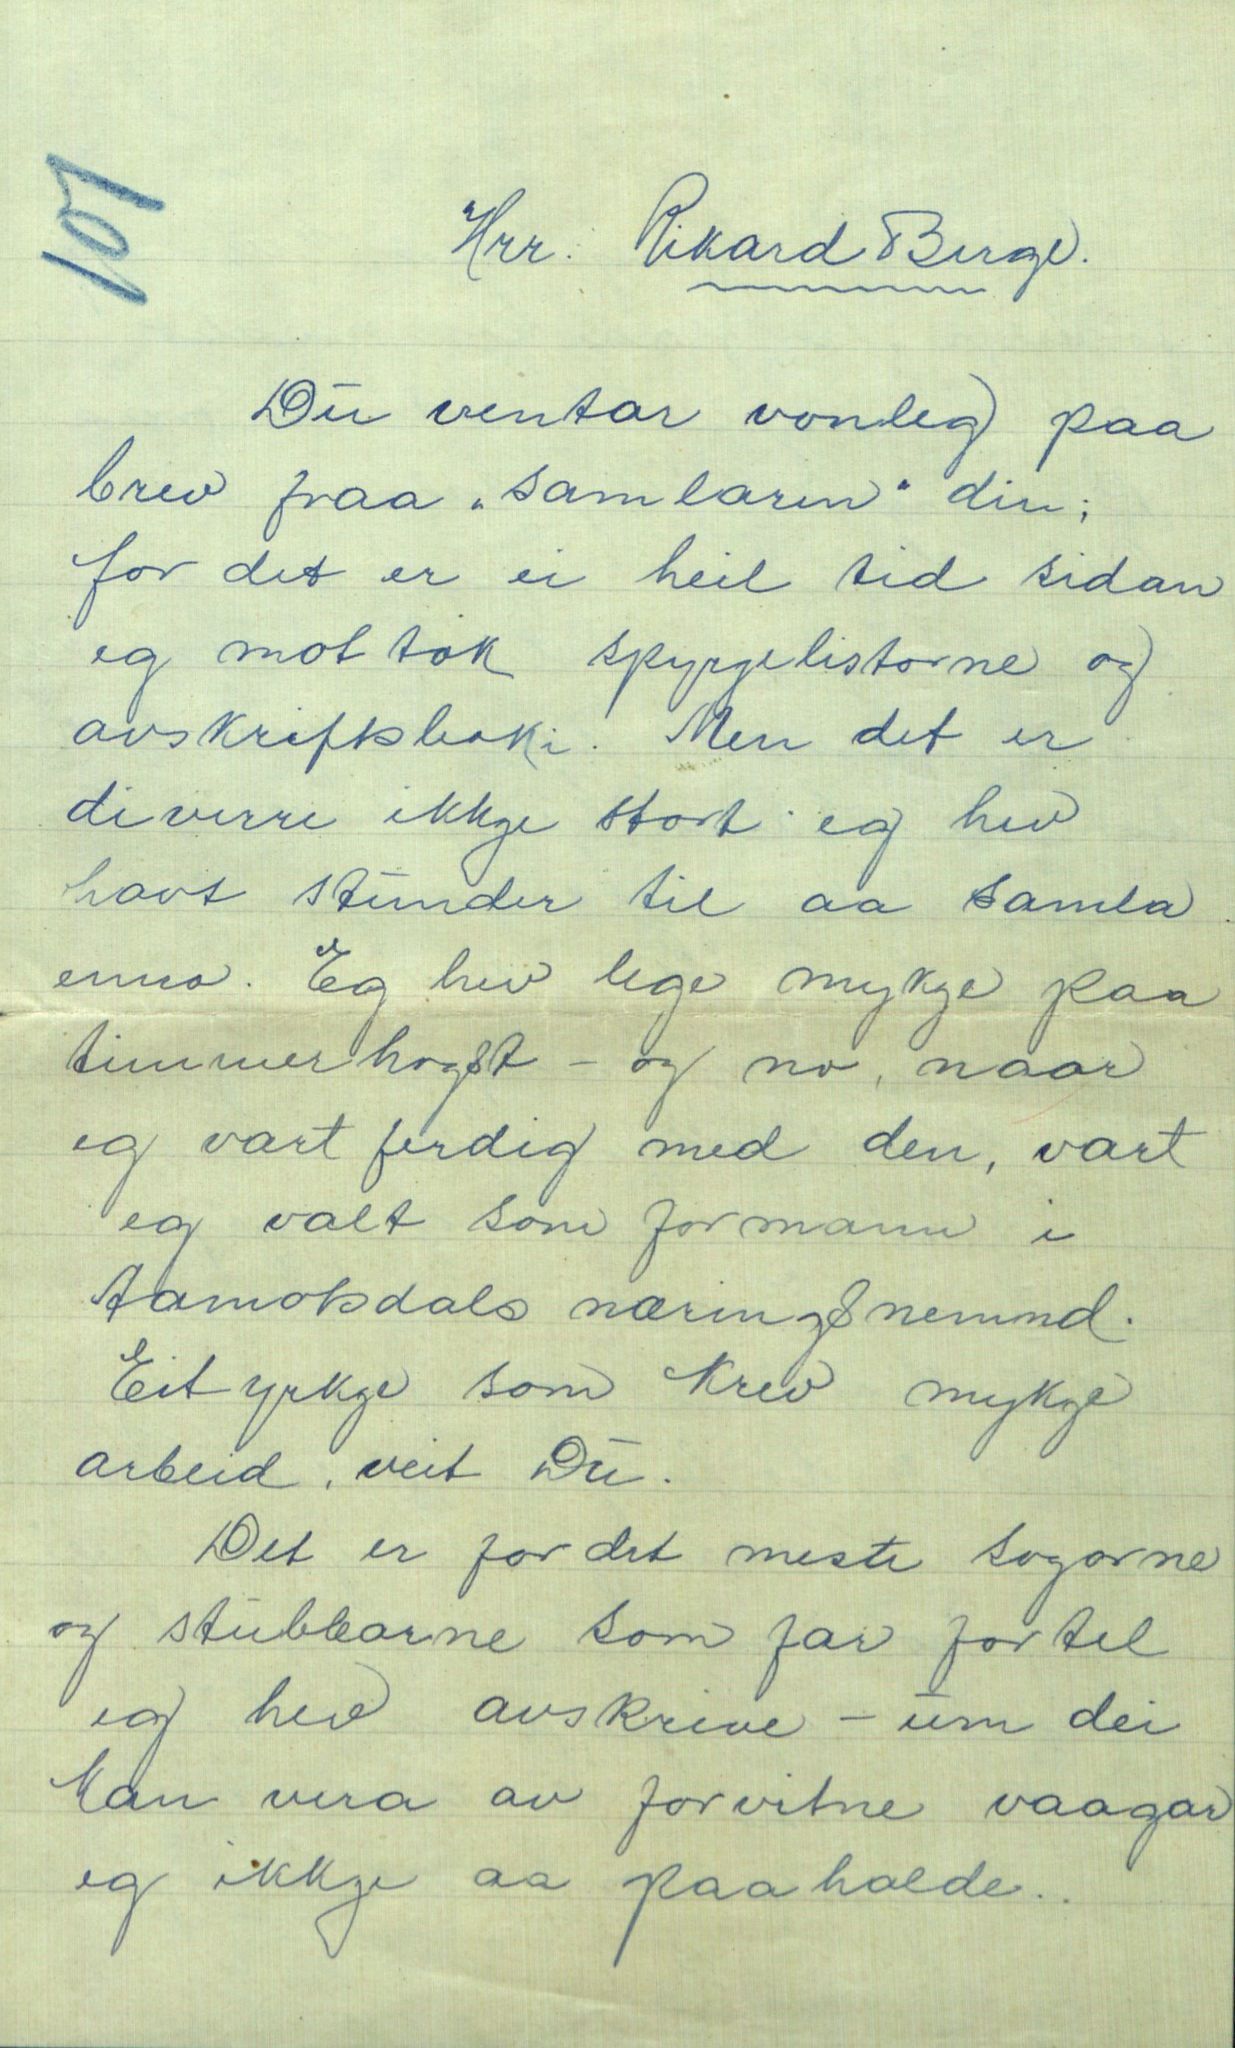 107
Hrr. Rikard Berge.
Du ventar vonleg paa
brev fraa „samlaren" din;
for det er ei heil tid sidan
eg mottok spyrjelistorne og
avskriftsboki. Men det er
diverre ikkje stort eg hev
havt stunder til aa samla
enno. Eg hev lege mykje paa
timmerhogst - og no, naar
eg vart ferdig med den, vart
eg valt som formann i
Aamotsdals næringsnemnd.
Eit yrkje som krev mykje
arbeid, veit Du.
Det er for det meste sogorne
og stubbarne som far fortel
eg hev avskrive - um dei
kan vera av forvitne vaagar
eg ikkje aa paahalde..